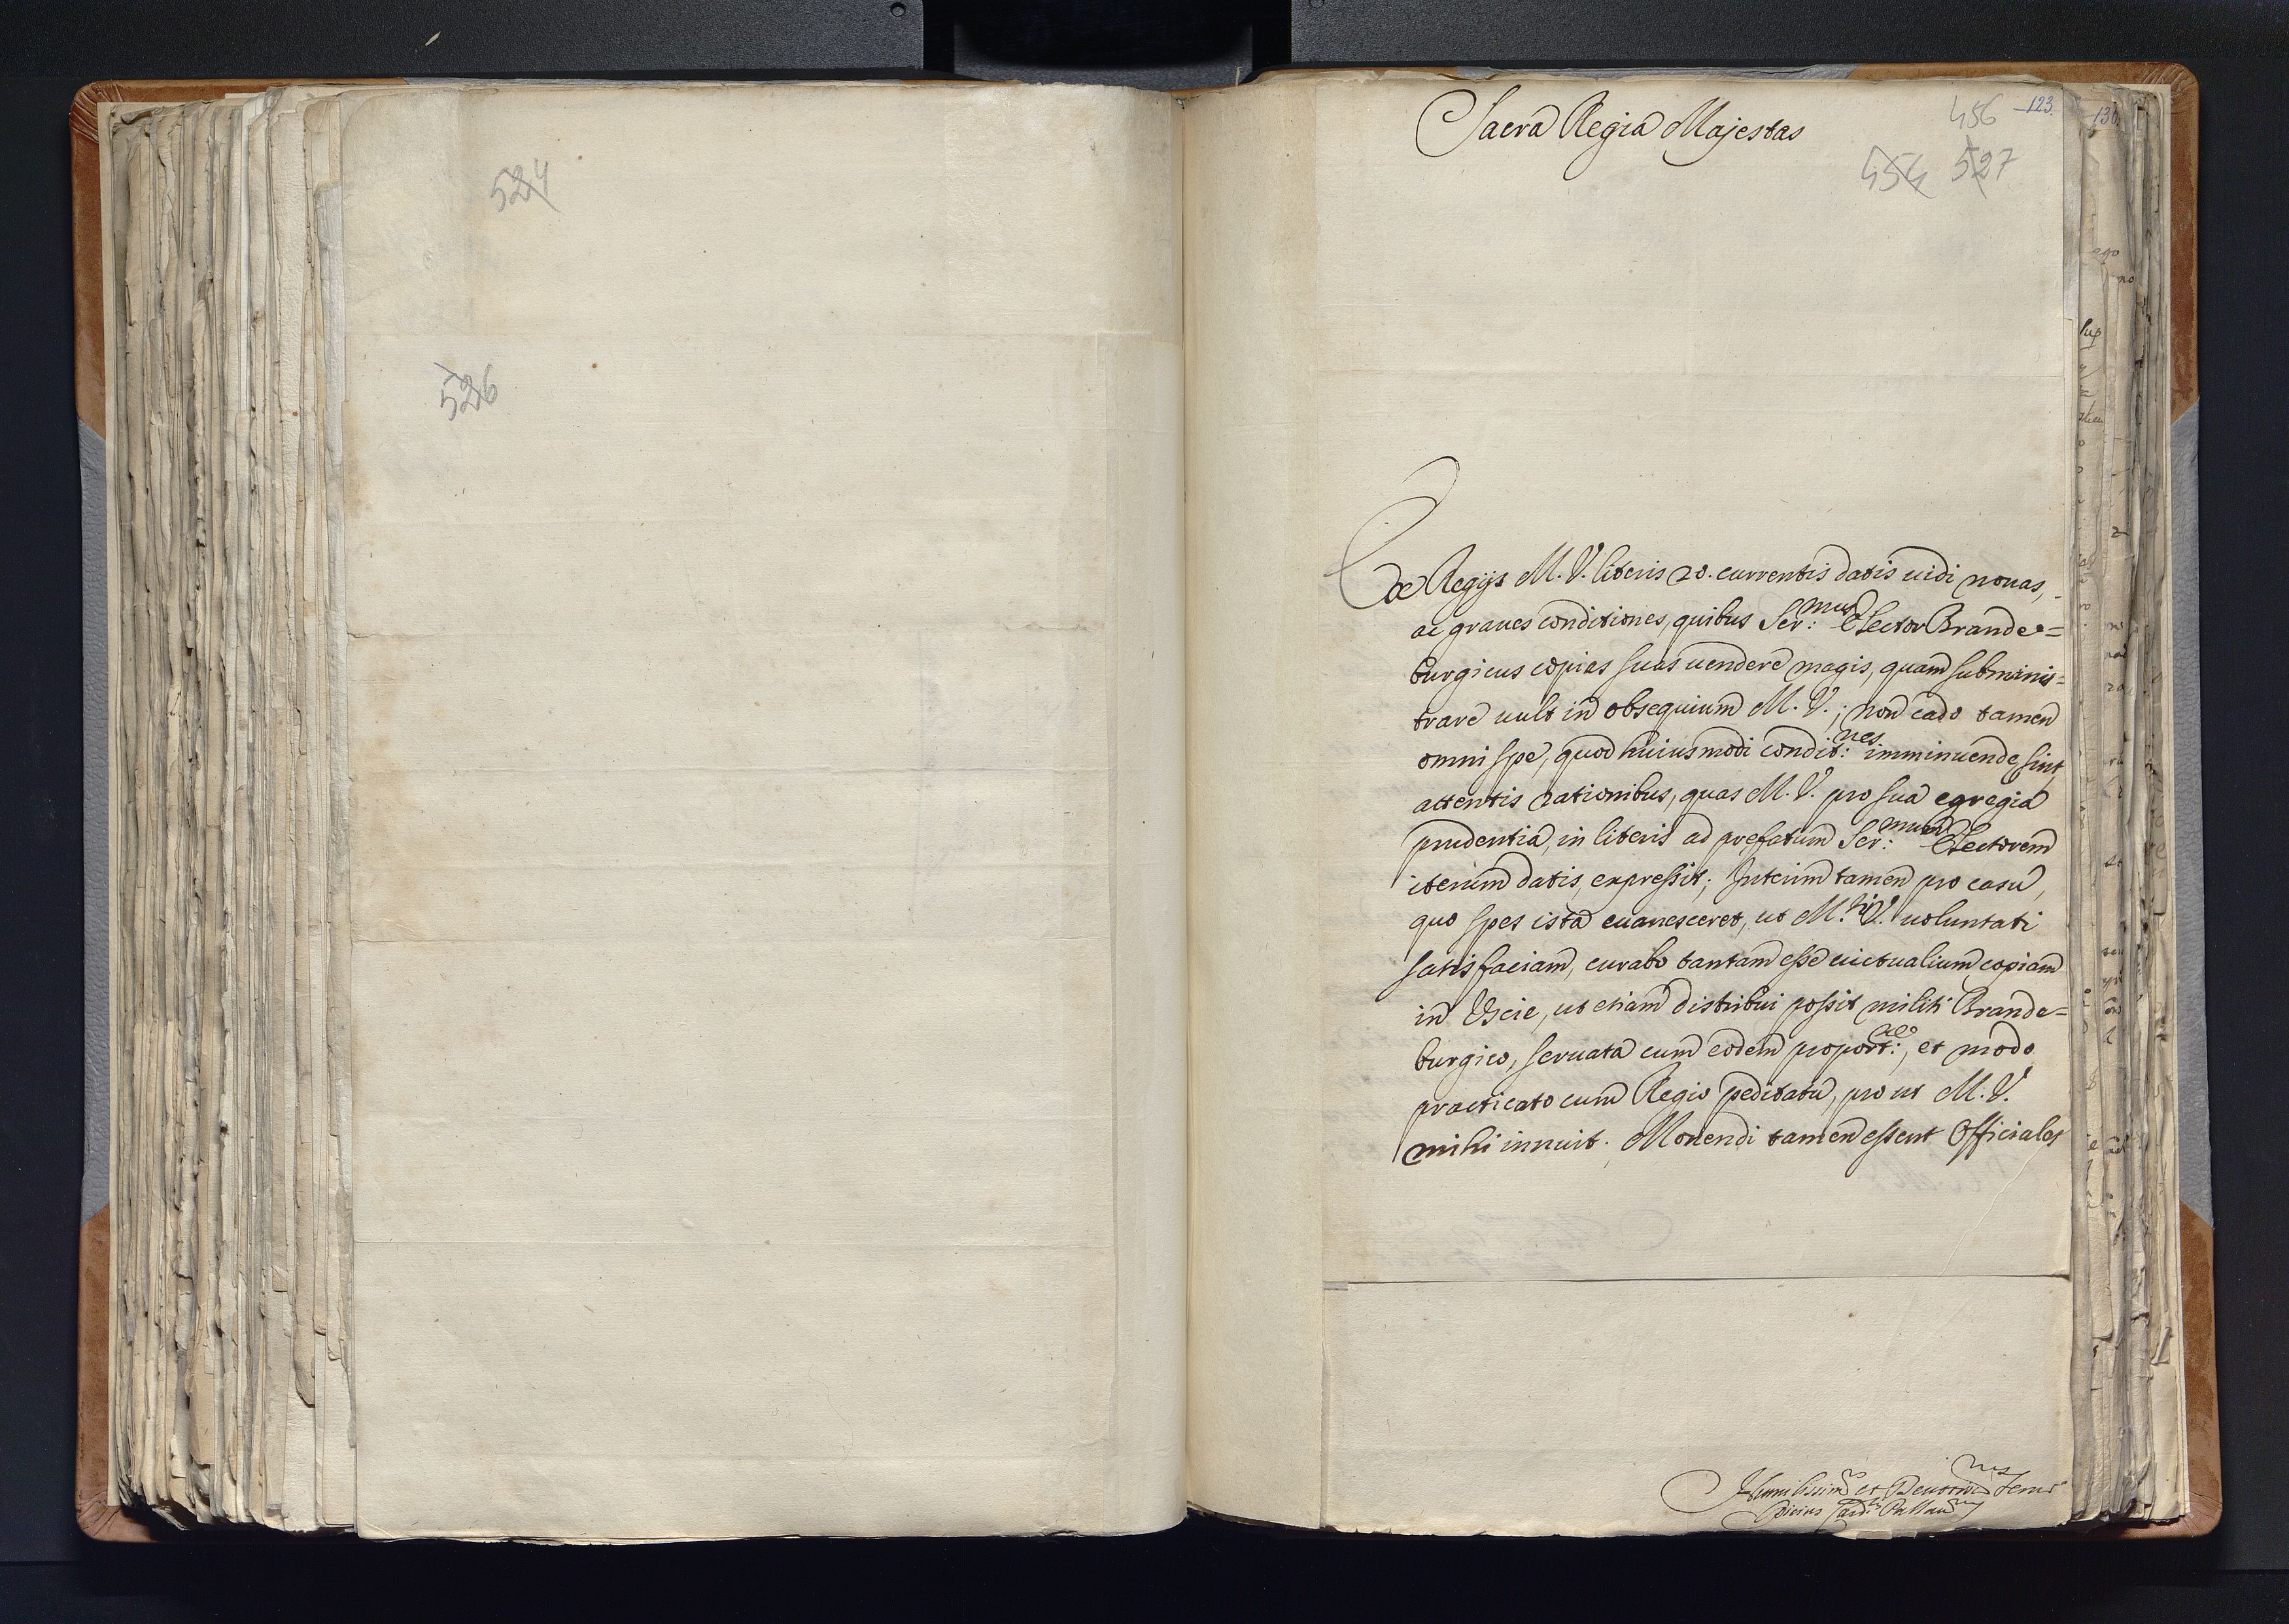 524
526
Sacra Regia Majestas
456 123.
454 527
130
Ex Regijs M. V. literis 20. currentis datis uidi nouas,
ac graues conditiones, quibus Ser:mus Elector Brande=
burgicus copias suas uendere magis, quam subminis=
trare uult in obsequium M. V.; non cado tamen
omni spe, quod huiusmodi condit:nes imminuende sint
attentis rationibus, quas M. V. pro sua egregia
prudentia, in literis ad prefatum Ser:mum Electorem
iterum datis, expressit; Interim tamen pro casu,
quo spes ista euanesceret, ut M.ti V. uoluntati
satisfaciam, curabo tantam esse uictualium copiam
in Escie, ut etiam distribui possit militi Brande=
burgico, seruata cum eodem proport:ne, et modo
practicato cum Regio peditatu, pro ut M. V.
mihi innuit. Monendi tamen essent Officiales
Humilissim9 et Deuotissim9 Seruus
Opicius Card.lis Pallau.nus